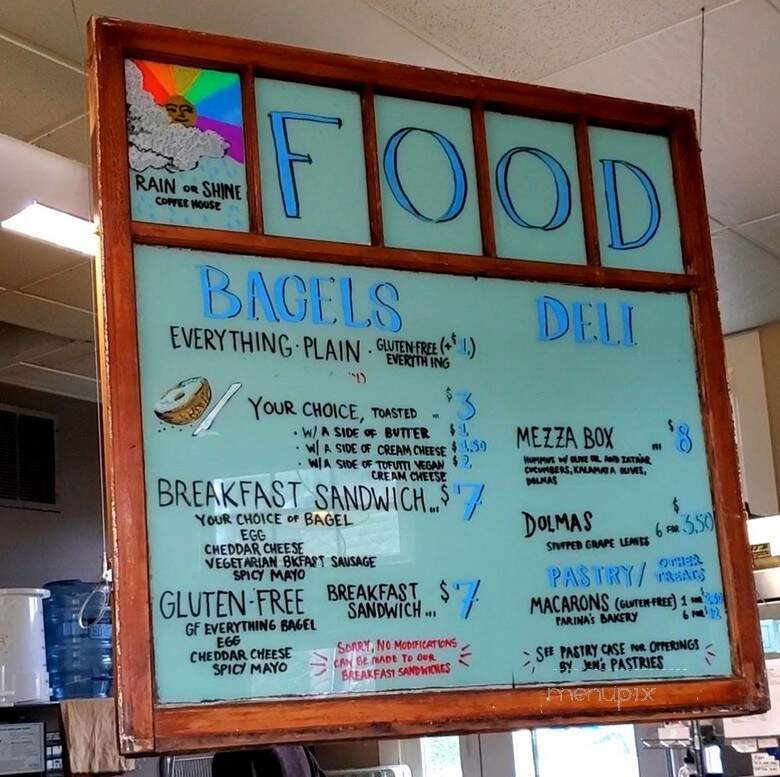 RAIN OR SHINE
COFFEE HOUSE
FOOD
BAGELS
EVERYTHING · PLAIN · GLUTEN-FREE (+$1.)
EVERYTHING
YOUR CHOICE, TOASTED .. $3
· W/ A SIDE OF BUTTER $1.
· W/ A SIDE OF CREAM CHEESE $1.50
· W/ A SIDE OF TOFUTTI VEGAN $2.
CREAM CHEESE
BREAKFAST SANDWICH... $7
YOUR CHOICE OF BAGEL
EGG
CHEDDAR CHEESE
VEGETARIAN BKFAST SAUSAGE
SPICY MAYO
GLUTEN-FREE BREAKFAST
SANDWICH... $7
GF EVERYTHING BAGEL
EGG
CHEDDAR CHEESE
SPICY MAYO
SORRY, NO MODIFICATIONS
CAN BE MADE TO OUR
BREAKFAST SANDWICHES
DELI
MEZZA BOX ... $8
HUMMUS W/ OLIVE OIL AND ZATAAR
CUCUMBERS, KALAMATA OLIVES,
DOLMAS
DOLMAS 6 FOR $3.50
STUFFED GRAPE LEAVES
PASTRY/ OTHER
TREATS
MACARONS (GLUTEN-FREE) 1 FOR
PARINA'S BAKERY 6 FOR $12
SEE PASTRY CASE FOR OFFERINGS
BY JEN'S PASTRIES
menupix